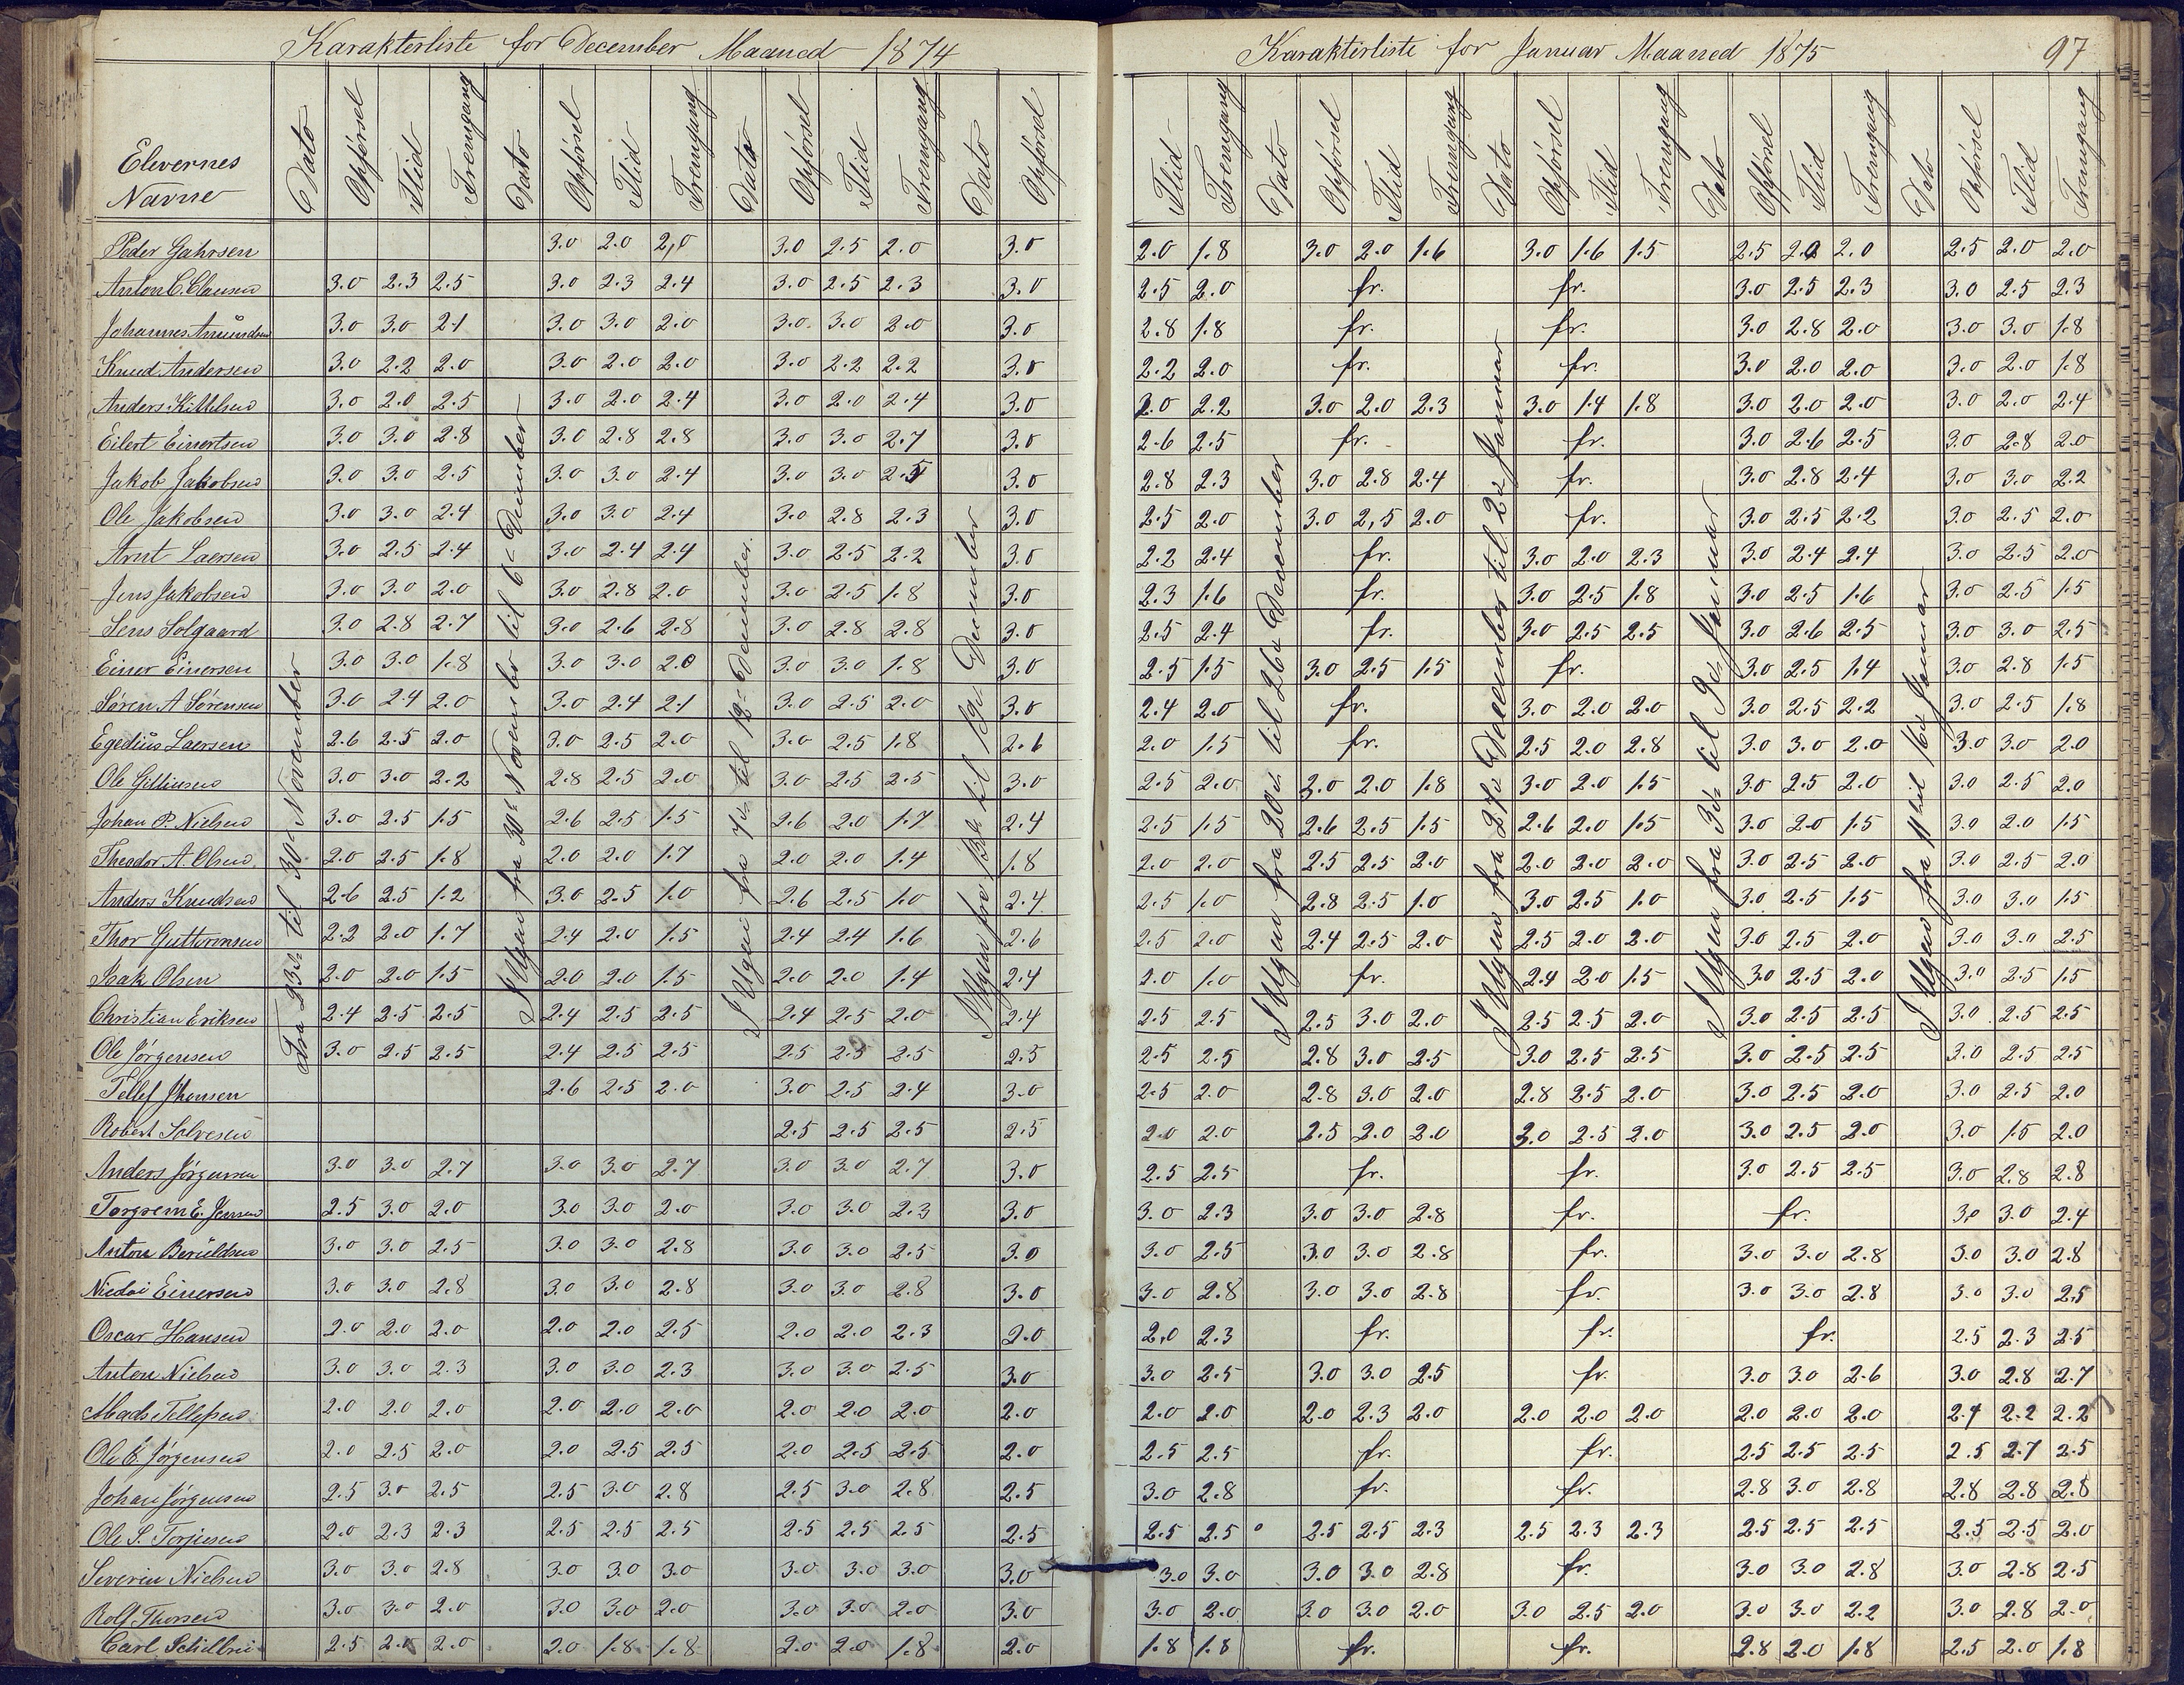 Karakterliste for December Maaned 1874
Elevernes Navne | Dato | Opførsel | Flid | Fremgang | Dato | Opførsel | Flid | Fremgang | Dato | Opførsel | Flid | Fremgang | Dato | Opførsel
Fra 23de til 30te November
I Ugen fra 30te November til 6te December
I Ugen fra 7de til 12te December.
I Ugen fra 13de til 19de December
Peder Gahrsen 3.0 2.0 2,0 3.0 2.5 2.0 3.0
Anton C. Clausen 3.0 2.3 2.5 3.0 2.3 2.4 3.0 2.5 2.3 3.0
Johannes Amundsen 3.0 3.0 2.1 3.0 3.0 2.0 3.0 3.0 2.0 3.0
Knud Andersen 3.0 2.2 2.0 3.0 2.0 2.0 3.0 2.2 2.2 3.0
Anders Kittelsen 3.0 2.0 2.5 3.0 2.0 2.4 3.0 2.0 2.4 3.0
Eilert Einertsen 3.0 3.0 2.8 3.0 2.8 2.8 3.0 3.0 2.7 3.0
Jakob Jakobsen 3.0 3.0 2.5 3.0 3.0 2.4 3.0 3.0 2.5 3.0
Ole Jakobsen 3.0 3.0 2.4 3.0 3.0 2.4 3.0 2.8 2.3 3.0
Arnt Laersen 3.0 2.5 2.4 3.0 2.4 2.4 3.0 2.5 2.2 3.0
Jens Jakobsen 3.0 3.0 2.0 3.0 2.8 2.0 3.0 2.5 1.8 3.0
Jens Solgaard 3.0 2.8 2.7 3.0 2.6 2.8 3.0 2.8 2.8 3.0
Einer Einersen 3.0 3.0 1.8 3.0 3.0 2.0 3.0 3.0 1.8 3.0
Søren A Sørensen 3.0 2.4 2.0 3.0 2.4 2.1 3.0 2.5 2.0 3.0
Egedius Laersen 2.6 2.5 2.0 3.0 2.5 2.0 3.0 2.5 1.8 2.6
Ole 3.0 3.0 2.2 2.8 2.5 2.0 3.0 2.5 2.5 3.0
Johan P. Nielsen 3.0 2.5 1.5 2.6 2.5 1.5 2.6 2.0 1.7 2.4
Theodor A. Olsen 2.0 2.5 1.8 2.0 2.0 1.7 2.0 2.0 1.4 1.8
Anders Knudsen 2.6 2.5 1.2 3.0 2.5 1.0 2.6 2.5 1.0 2.4
Thor Guttormsen 2.2 2.0 1.7 2.4 2.0 1.5 2.4 2.4 1.6 2.6
Isak Olsen 2.0 2.0 1.5 2.0 2.0 1.5 2.0 2.0 1.4 2.4
Christian Eriksen 2.4 2.5 2.5 2.4 2.5 2.5 2.4 2.5 2.0 2.4
Ole Jørgensen 3.0 2.5 2.5 2.4 2.5 2.5 2.5 2.5 2.5 2.5
Tellef Jhonsen 2.6 2.5 2.0 3.0 2.5 2.4 3.0
Robert Solvesen 2.5 2.5 2.5 2.5
Anders Jørgensen 3.0 3.0 2.7 3.0 3.0 2.7 3.0 3.0 2.7 3.0
Torgrem E. Jensen 2.5 3.0 2.0 3.0 3.0 2.0 3.0 3.0 2.3 3.0
Anton Beruldsen 3.0 3.0 2.5 3.0 3.0 2.8 3.0 3.0 2.5 3.0
Nicolai Einersen 3.0 3.0 2.8 3.0 3.0 2.8 3.0 3.0 2.8 3.0
Oscar Hansen 2.0 2.0 2.0 2.0 2.0 2.5 2.0 2.0 2.3 2.0
Anton Nielsen 3.0 3.0 2.3 3.0 3.0 2.3 3.0 3.0 2.5 3.0
Mads Tellefsen 2.0 2.0 2.0 2.0 2.0 2.0 2.0 2.0 2.0 2.0
Ole E. Jørgensen 2.0 2.5 2.0 2.0 2.5 2.5 2.0 2.5 2.5 2.0
Johan Jørgensen 2.5 3.0 2.5 2.5 3.0 2.8 2.5 3.0 2.8 2.5
Ole S. Torjusen 2.0 2.3 2.3 2.5 2.5 2.5 2.5 2.5 2.5 2.5
Severin Nielsen 3.0 3.0 2.8 3.0 3.0 3.0 3.0 3.0 3.0 3.0
Rolf Thorsen 3.0 3.0 2.0 3.0 3.0 2.0 3.0 3.0 2.0 3.0
Carl 2.5 2.0 2.0 2.0 1.8 1.8 2.0 2.0 1.8 2.0
Karakterliste for Januar Maaned 1875 97
Flid | Fremgang | Dato | Opførsel | Flid | Fremgang | Dato | Opførsel | Flid | Fremgang | Dato | Opførsel | Flid | Fremgang | Dato | Opførsel | Flid | Fremgang
I Ugen fra 20de til 26de December
I Ugen fra 27de December til 2de Januar
I Ugen fra 3die til 9de Januar
I Ugen fra 11te til 16de Januar
2.0 1.8 3.0 2.0 1.6 3.0 1.6 1.5 2.5 2.0 2.0 2.5 2.0 2.0
2.5 2.0 fr. fr. 3.0 2.5 2.3 3.0 2.5 2.3
2.8 1.8 fr. fr. 3.0 2.8 2.0 3.0 3.0 1.8
2.2 2.0 fr. fr. 3.0 2.0 2.0 3.0 2.0 1.8
2.0 2.2 3.0 2.0 2.3 3.0 1.4 1.8 3.0 2.0 2.0 3.0 2.0 2.4
2.6 2.5 fr. fr. 3.0 2.6 2.5 3.0 2.8 2.0
2.8 2.3 3.0 2.8 2.4 fr. 3.0 2.8 2.4 3.0 3.0 2.2
2.5 2.0 3.0 2,5 2.0 fr. 3.0 2.5 2.2 3.0 2.5 2.0
2.2 2.4 fr. 3.0 2.0 2.3 3.0 2.4 2.4 3.0 2.5 2.0
2.3 1.6 fr. 3.0 2.5 1.8 3.0 2.5 1.6 3.0 2.5 1.5
2.5 2.4 fr. 3.0 2.5 2.5 3.0 2.6 2.5 3.0 3.0 2.5
2.5 1.5 3.0 2.5 1.5 fr. 3.0 2.5 1.4 3.0 2.8 1.5
2.4 2.0 fr. 3.0 2.0 2.0 3.0 2.5 2.2 3.0 2.5 1.8
2.0 1.5 fr. 2.5 2.0 2.8 3.0 3.0 2.0 3.0 3.0 2.0
2.5 2.0 3.0 2.0 1.8 3.0 2.0 1.5 3.0 2.5 2.0 3.0 2.5 2.0
2.5 1.5 2.6 2.5 1.5 2.6 2.0 1.5 3.0 2.0 1.5 3.0 2.0 1.5
2.0 2.0 2.5 2.5 2.0 2.0 2.0 2.0 3.0 2.5 2.0 3.0 2.5 2.0
2.5 1.0 2.8 2.5 1.0 3.0 2.5 1.0 3.0 2.5 1.5 3.0 3.0 1.5
2.5 2.0 2.4 2.5 2.0 2.5 2.0 2.0 3.0 2.5 2.0 3.0 3.0 2.5
2.0 1.0 fr. 2.4 2.0 1.5 3.0 2.5 2.0 3.0 2.5 1.5
2.5 2.5 2.5 3.0 2.0 2.5 2.5 2.0 3.0 2.5 2.5 3.0 2.5 2.5
2.5 2.5 2.8 3.0 2.5 3.0 2.5 2.5 3.0 2.5 2.5 3.0 2.5 2.5
2.5 2.0 2.8 3.0 2.0 2.8 2.5 2.0 3.0 2.5 2.0 3.0 2.5 2.0
2.0 2.0 2.5 2.0 2.0 3.0 2.5 2.0 3.0 2.5 2.0 3.0 1.5 2.0
2.5 2.5 fr. fr. 3.0 2.5 2.5 3.0 2.8 2.8
3.0 2.3 3.0 3.0 2.8 fr. fr. 3.0 3.0 2.4
3.0 2.5 3.0 3.0 2.8 fr. 3.0 3.0 2.8 3.0 3.0 2.8
3.0 2.8 3.0 3.0 2.8 fr. 3.0 3.0 2.8 3.0 3.0 2.5
2.0 2.3 fr. fr. fr. 2.5 2.3 2.5
3.0 2.5 3.0 3.0 2.5 fr. 3.0 3.0 2.6 3.0 2.8 2.7
2.0 2.0 2.0 2.3 2.0 2.0 2.0 2.0 2.0 2.0 2.0 2.4 2.2 2.2
2.5 2.5 fr. fr. 2.5 2.5 2.5 2.5 2.7 2.5
3.0 2.8 fr. fr. 2.8 3.0 2.8 2.8 2.8 2.8
2.5 2.5 2.5 2.5 2.3 2.5 2.3 2.3 2.5 2.5 2.5 2.5 2.5 2.0
3.0 3.0 3.0 3.0 2.8 fr. 3.0 3.0 2.8 3.0 2.8 2.5
3.0 2.0 3.0 3.0 2.0 3.0 2.5 2.0 3.0 3.0 2.2 3.0 2.8 2.0
1.8 1.8 fr. fr. 2.8 2.0 1.8 2.5 2.0 1.8